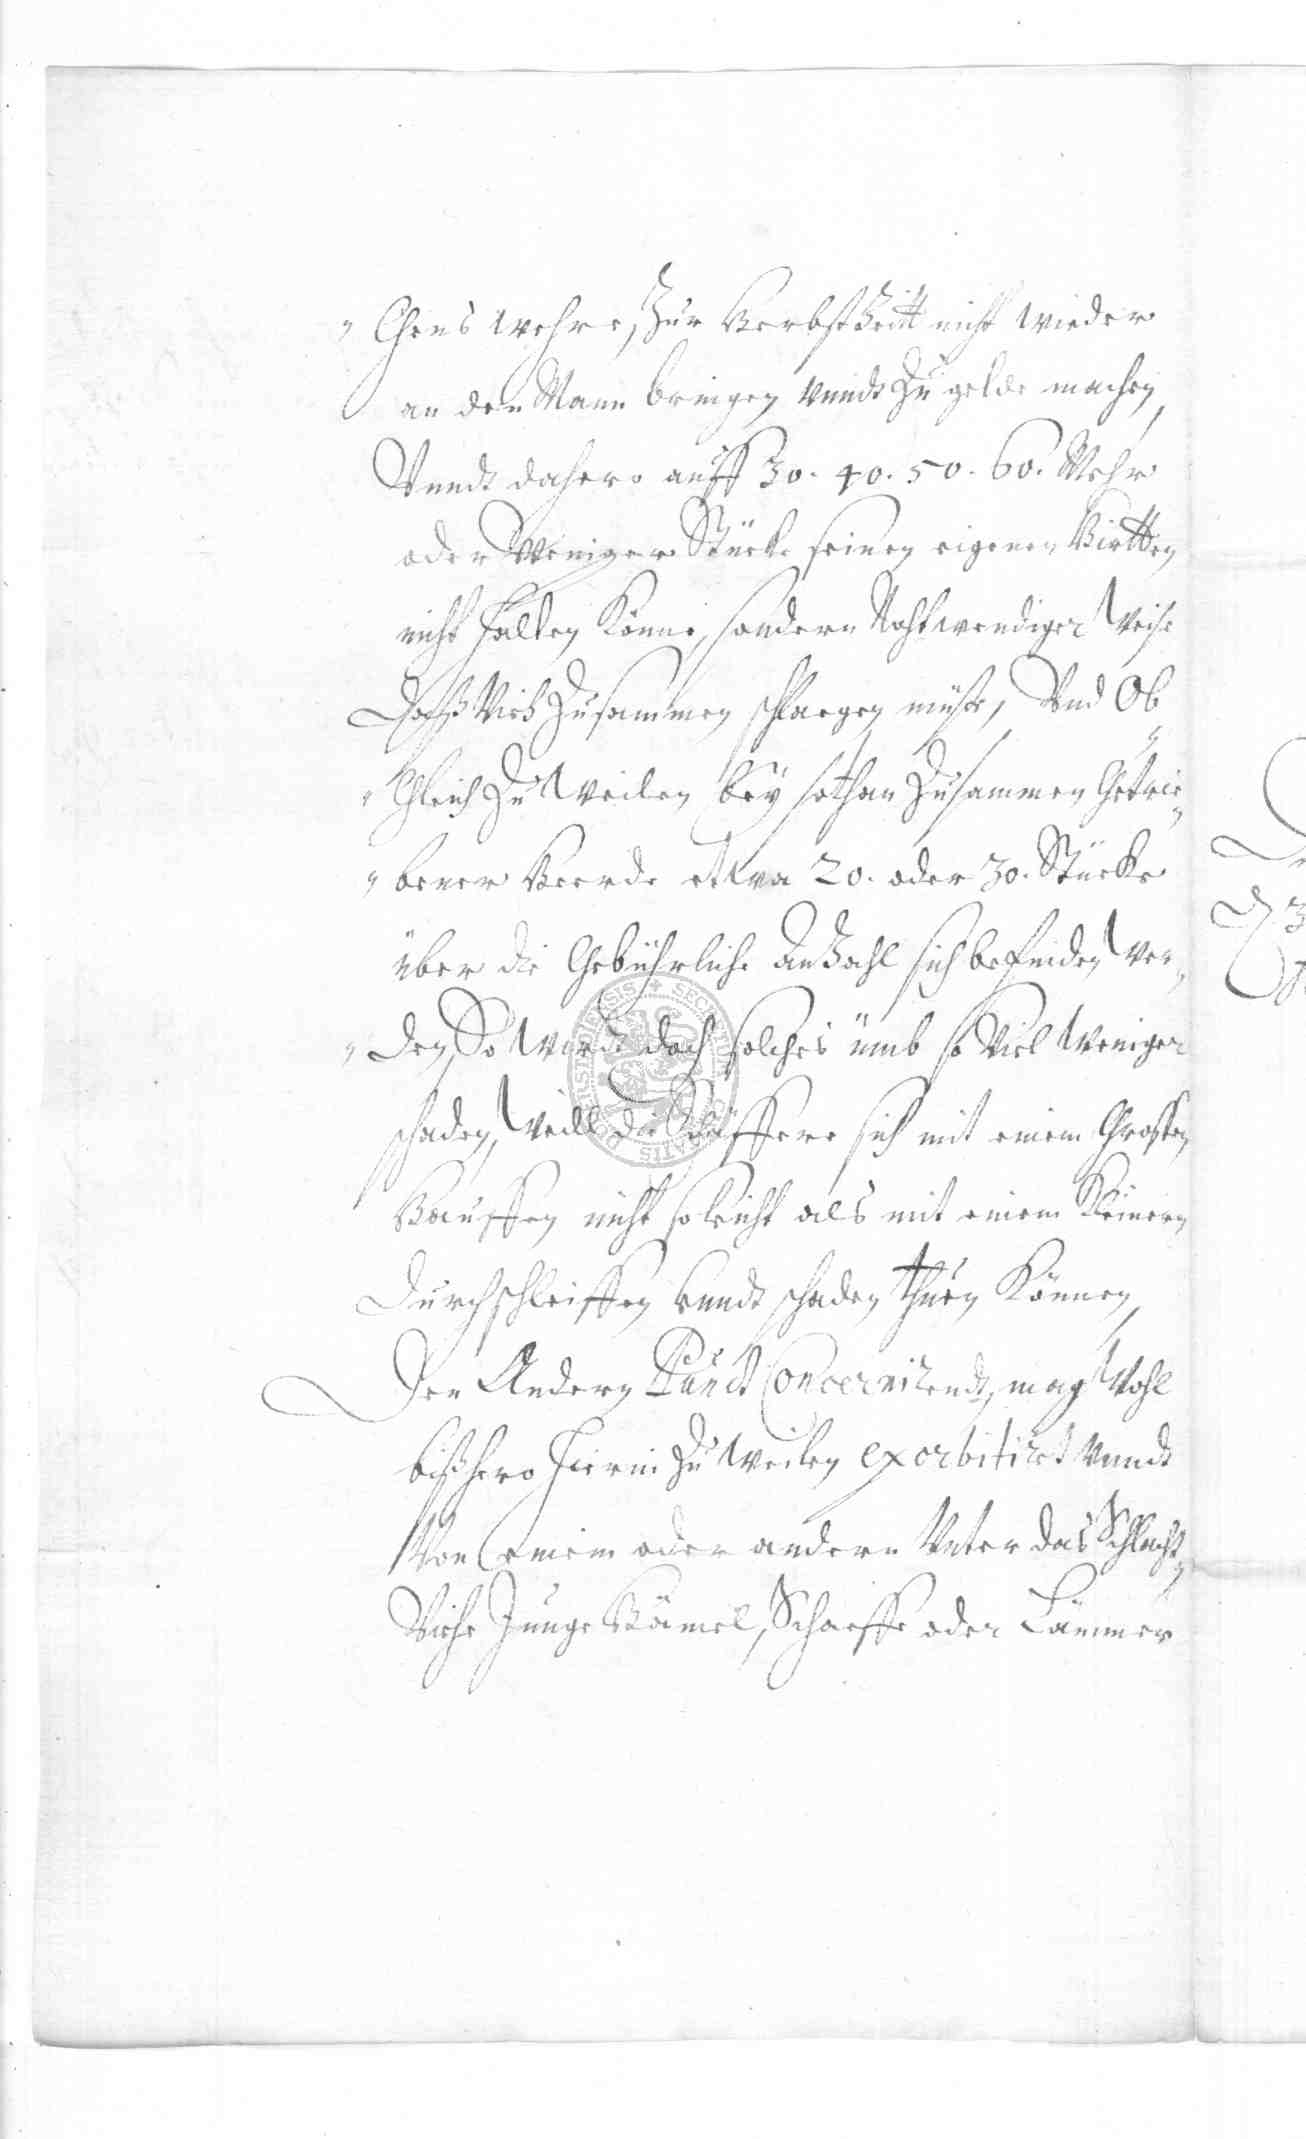 "chens wehre, Zur HerbstZeitt nicht wieder
an den Mann bringen unndt Zu gelde machen,
Unndt dahero auff 30. 40. 50. 60. Mehr
oder weniger Stücke seinen eigenen Hirtten
nicht halten Könne, sondern Nohtwendiger weise
daß Vieh Zusammen schlaegen müste, Und Ob„
"gleich Zu Weilen bey sothan Zusammen Getrie„
"bener Heerde etwa 20. oder 30. Stücke
über die Gebührliche anZahl sich befinden wer„
"den, So wirdt doch solches ümb so viel weniger
schaden, weill die Schäffere sich mit einem Grossen
Hauffen nicht so leicht als mit einem Kleinern
durchschleiffen unndt schaden thuen Können,
Den Andern Punct Concernirendt, mag wohl
bißhero hierin Zu weilen exorbitirt unndt
Von einem oder andern Unter das Schlacht„
Viehe Junge Hämel, Schaeffe oder Lämmer
SECRETUM CIVITATIS DODERSTADIENSIS